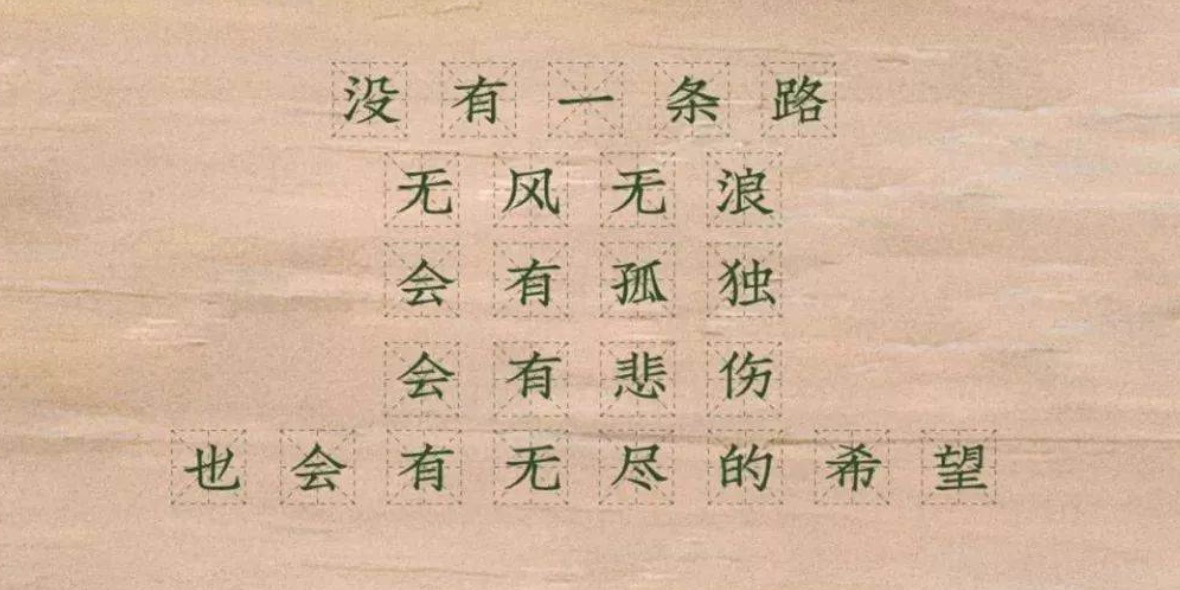 没有一条路
无风无浪
会有孤独
会有悲伤
也会有无尽的希望